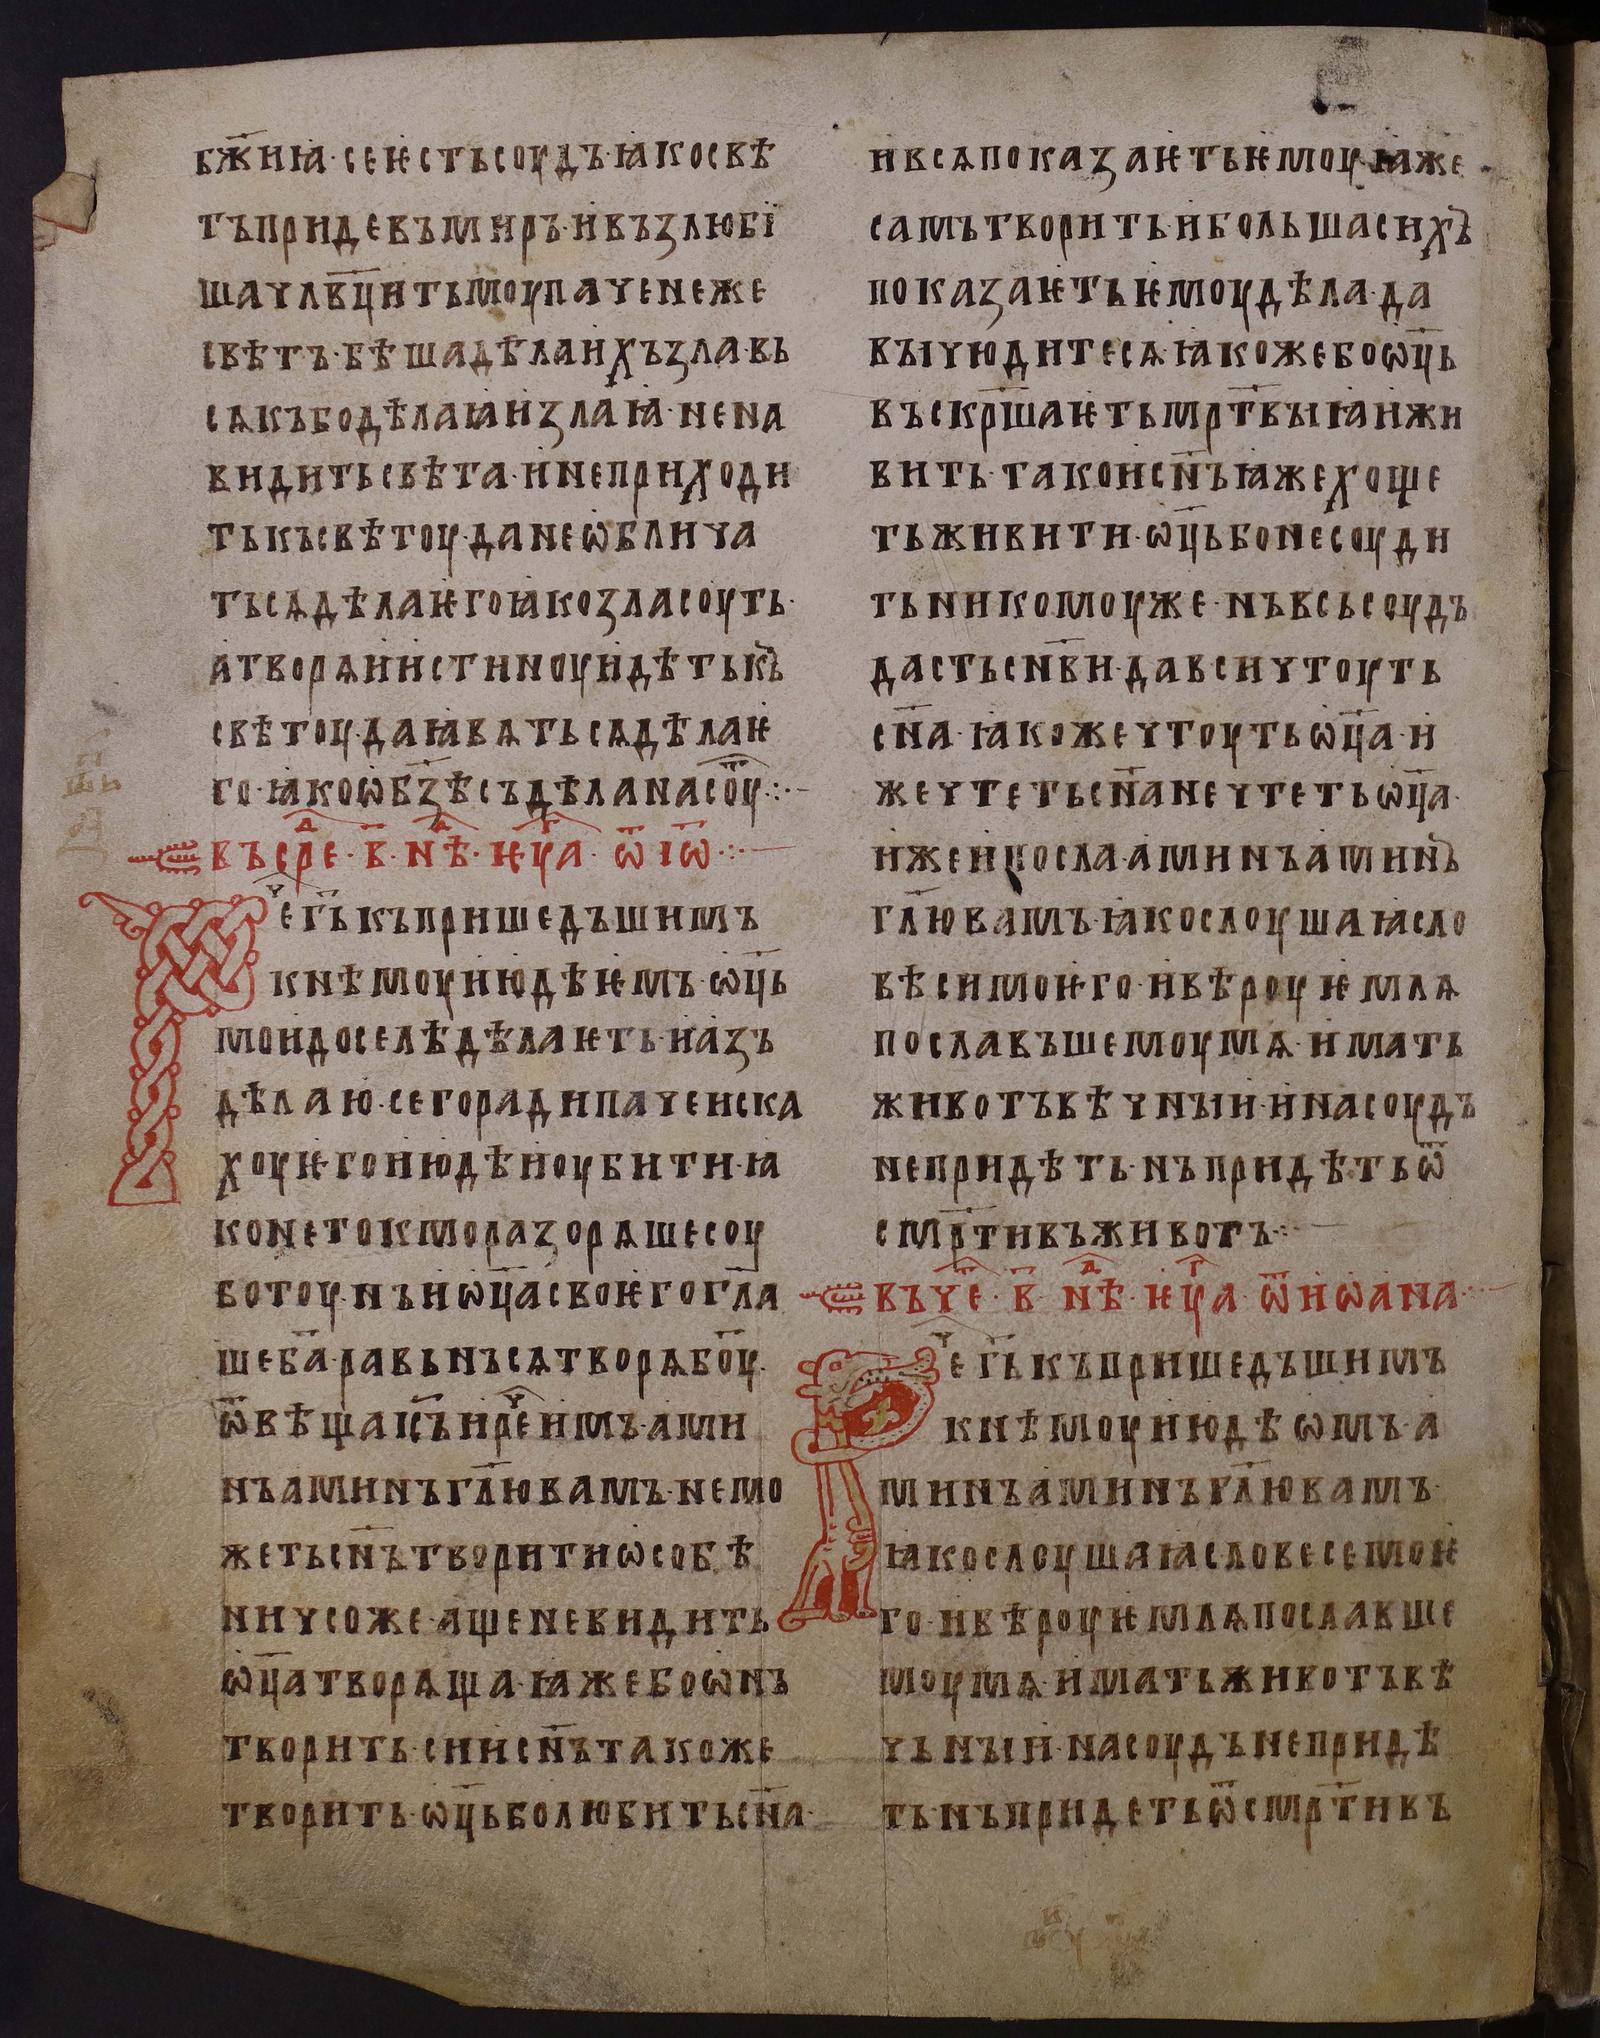 бж҃иꙗ·се ѥсть соудъ·ꙗко свѣ
тъ приде въ миръ·и възлюбї
ша чл҃вци тьмоу паче неже
свѣтъ·бѣша дѣла ихъ зла·вь
сѧкъ бо дѣлаꙗи злаꙗ·нена
видить свѣта·и не приходи
ть къ свѣтоу·да не ѡблича
ть сѧ дѣла ѥго ꙗко зла соуть·
а творѧи истиноу идѣть къ
свѣтоу·да ꙗвѧть сѧ дѣла ѥ
го·ꙗко ѡ бз҃ѣ съдѣлана соу҃ⷮ·:·
въ сре·в҃·нѣ·ѥуа·ѿ іѡ·:·
Рⷱе г҃ь къ пришедъшимъ
к нѣмоу июдѣѥмъ·ѡц҃ь
мои доселѣ дѣлаѥть·и азъ
дѣлаю·сего ради паче иска
хоу ѥго июдѣи оубити·ꙗ
ко не токмо разорѧше соу
ботоу·нъ и ѡц҃а своѥго гл҃а
ше ба҃·равьнъ сѧ творѧ боу҃·
ѿвѣща іс҃ъ и рⷱе имъ·ами
нъ аминъ гл҃ю вамъ·не мо
жеть сн҃ъ творити ѡ собѣ
ничсоже·аще не видить
ѡц҃а творѧща·ꙗже бо ѡнъ
творить·си и сн҃ъ такоже
творить·ѡц҃ь бо любить сн҃а·
и всѧ показаѥть ѥмоу ꙗже
самъ творить·и больша сихъ
показаѥть ѥмоу дѣла·да
вы чюдите сѧ·ꙗкоже бо ѡц҃ь
въскрш҃аѥть мрт҃выꙗ и жи
вить·тако и сн҃ъ ꙗже хоще
ть живити·ѡц҃ь бо не соуди
ть никомоуже·нъ вьсь соудъ
дасть сн҃ви·да вси чтоуть
сн҃а·ꙗкоже чтоуть ѡц҃а·и
же чтеть сн҃а не чтеть ѡц҃а·
иже и посла·аминъ аминъ
гл҃ю вамъ·ꙗко слоушаꙗ сло
вѣси моѥго·и вѣроу ѥмлѧ
пославъшемоу мѧ·имать
животъ вѣчныи·и на соудъ
не придѣть·нъ придѣть ѿ
смр҃ти въ животъ·:·
въ че·в҃·нѣ·ѥуа ѿ иѡана·:·
Рⷱе г҃ь къ пришедъшимъ
к нѣмоу июдѣѡмъ·а
минъ аминъ гл҃ю вамъ·
ꙗко слоушаꙗ словесе моѥ
го·и вѣроу ѥмлѧ пославше
моу мѧ·имать животъ вѣ
чьныи·на соудъ не придѣ
ть·нъ придеть ѿ смрт҃и въ